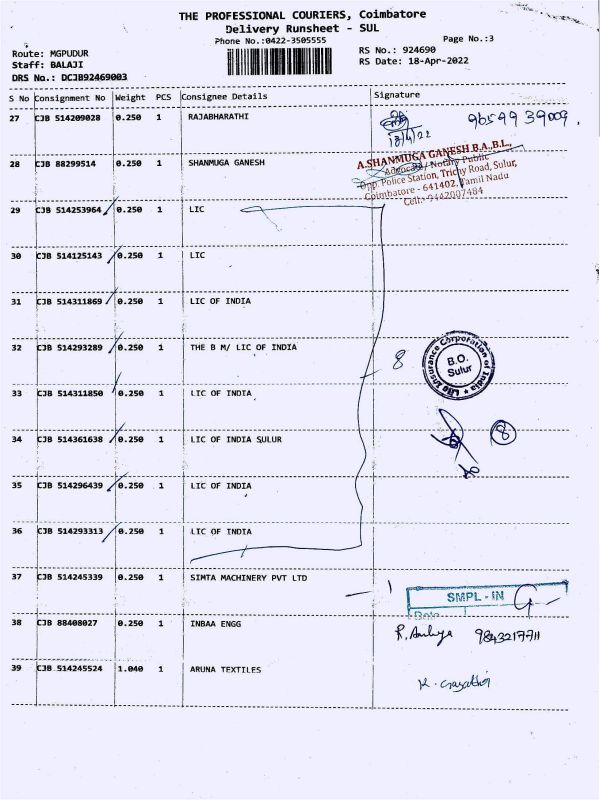 THE PROFESSIONAL COURIERS, Coimbatore
Delivery Runsheet - SUL
Phone No.:0422-3505555
Page No.:3
Route: MGPUDUR
RS No.: 924690
Staff: BALAJI
RS Date: 18-Apr-2022
DRS No.: DCJB92469003
S No Consignment No Weight PCS Consignee Details Signature
27 CJB 514209028 0.250 1 RAJABHARATHI 9659939009.
18/4/22
28 CJB 88299514 0.250 1 SHANMUGA GANESH
A.SHANMUGA GANESH B.A.,B.L.,
Advocate / Notary Public
Opp. Police Station, Trichy Road, Sulur,
Coimbatore - 641402, Tamil Nadu
Cell: 9442007484
29 CJB 514253964 0.250 1 LIC
30 CJB 514125143 0.250 1 LIC
31 CJB 514311869 0.250 1 LIC OF INDIA
32 CJB 514293289 0.250 1 THE B M/ LIC OF INDIA
8
Life Insurance Corporation of India
B.O.
Sulur
33 CJB 514311850 0.250 1 LIC OF INDIA
34 CJB 514361638 0.250 1 LIC OF INDIA SULUR
8
35 CJB 514296439 0.250 1 LIC OF INDIA
36 CJB 514293313 0.250 1 LIC OF INDIA
37 CJB 514245339 0.250 1 SIMTA MACHINERY PVT LTD
1
SMPL - IN
Date
38 CJB 88408027 0.250 1 INBAA ENGG
9843217711
39 CJB 514245524 1.040 1 ARUNA TEXTILES
K. Gayathri